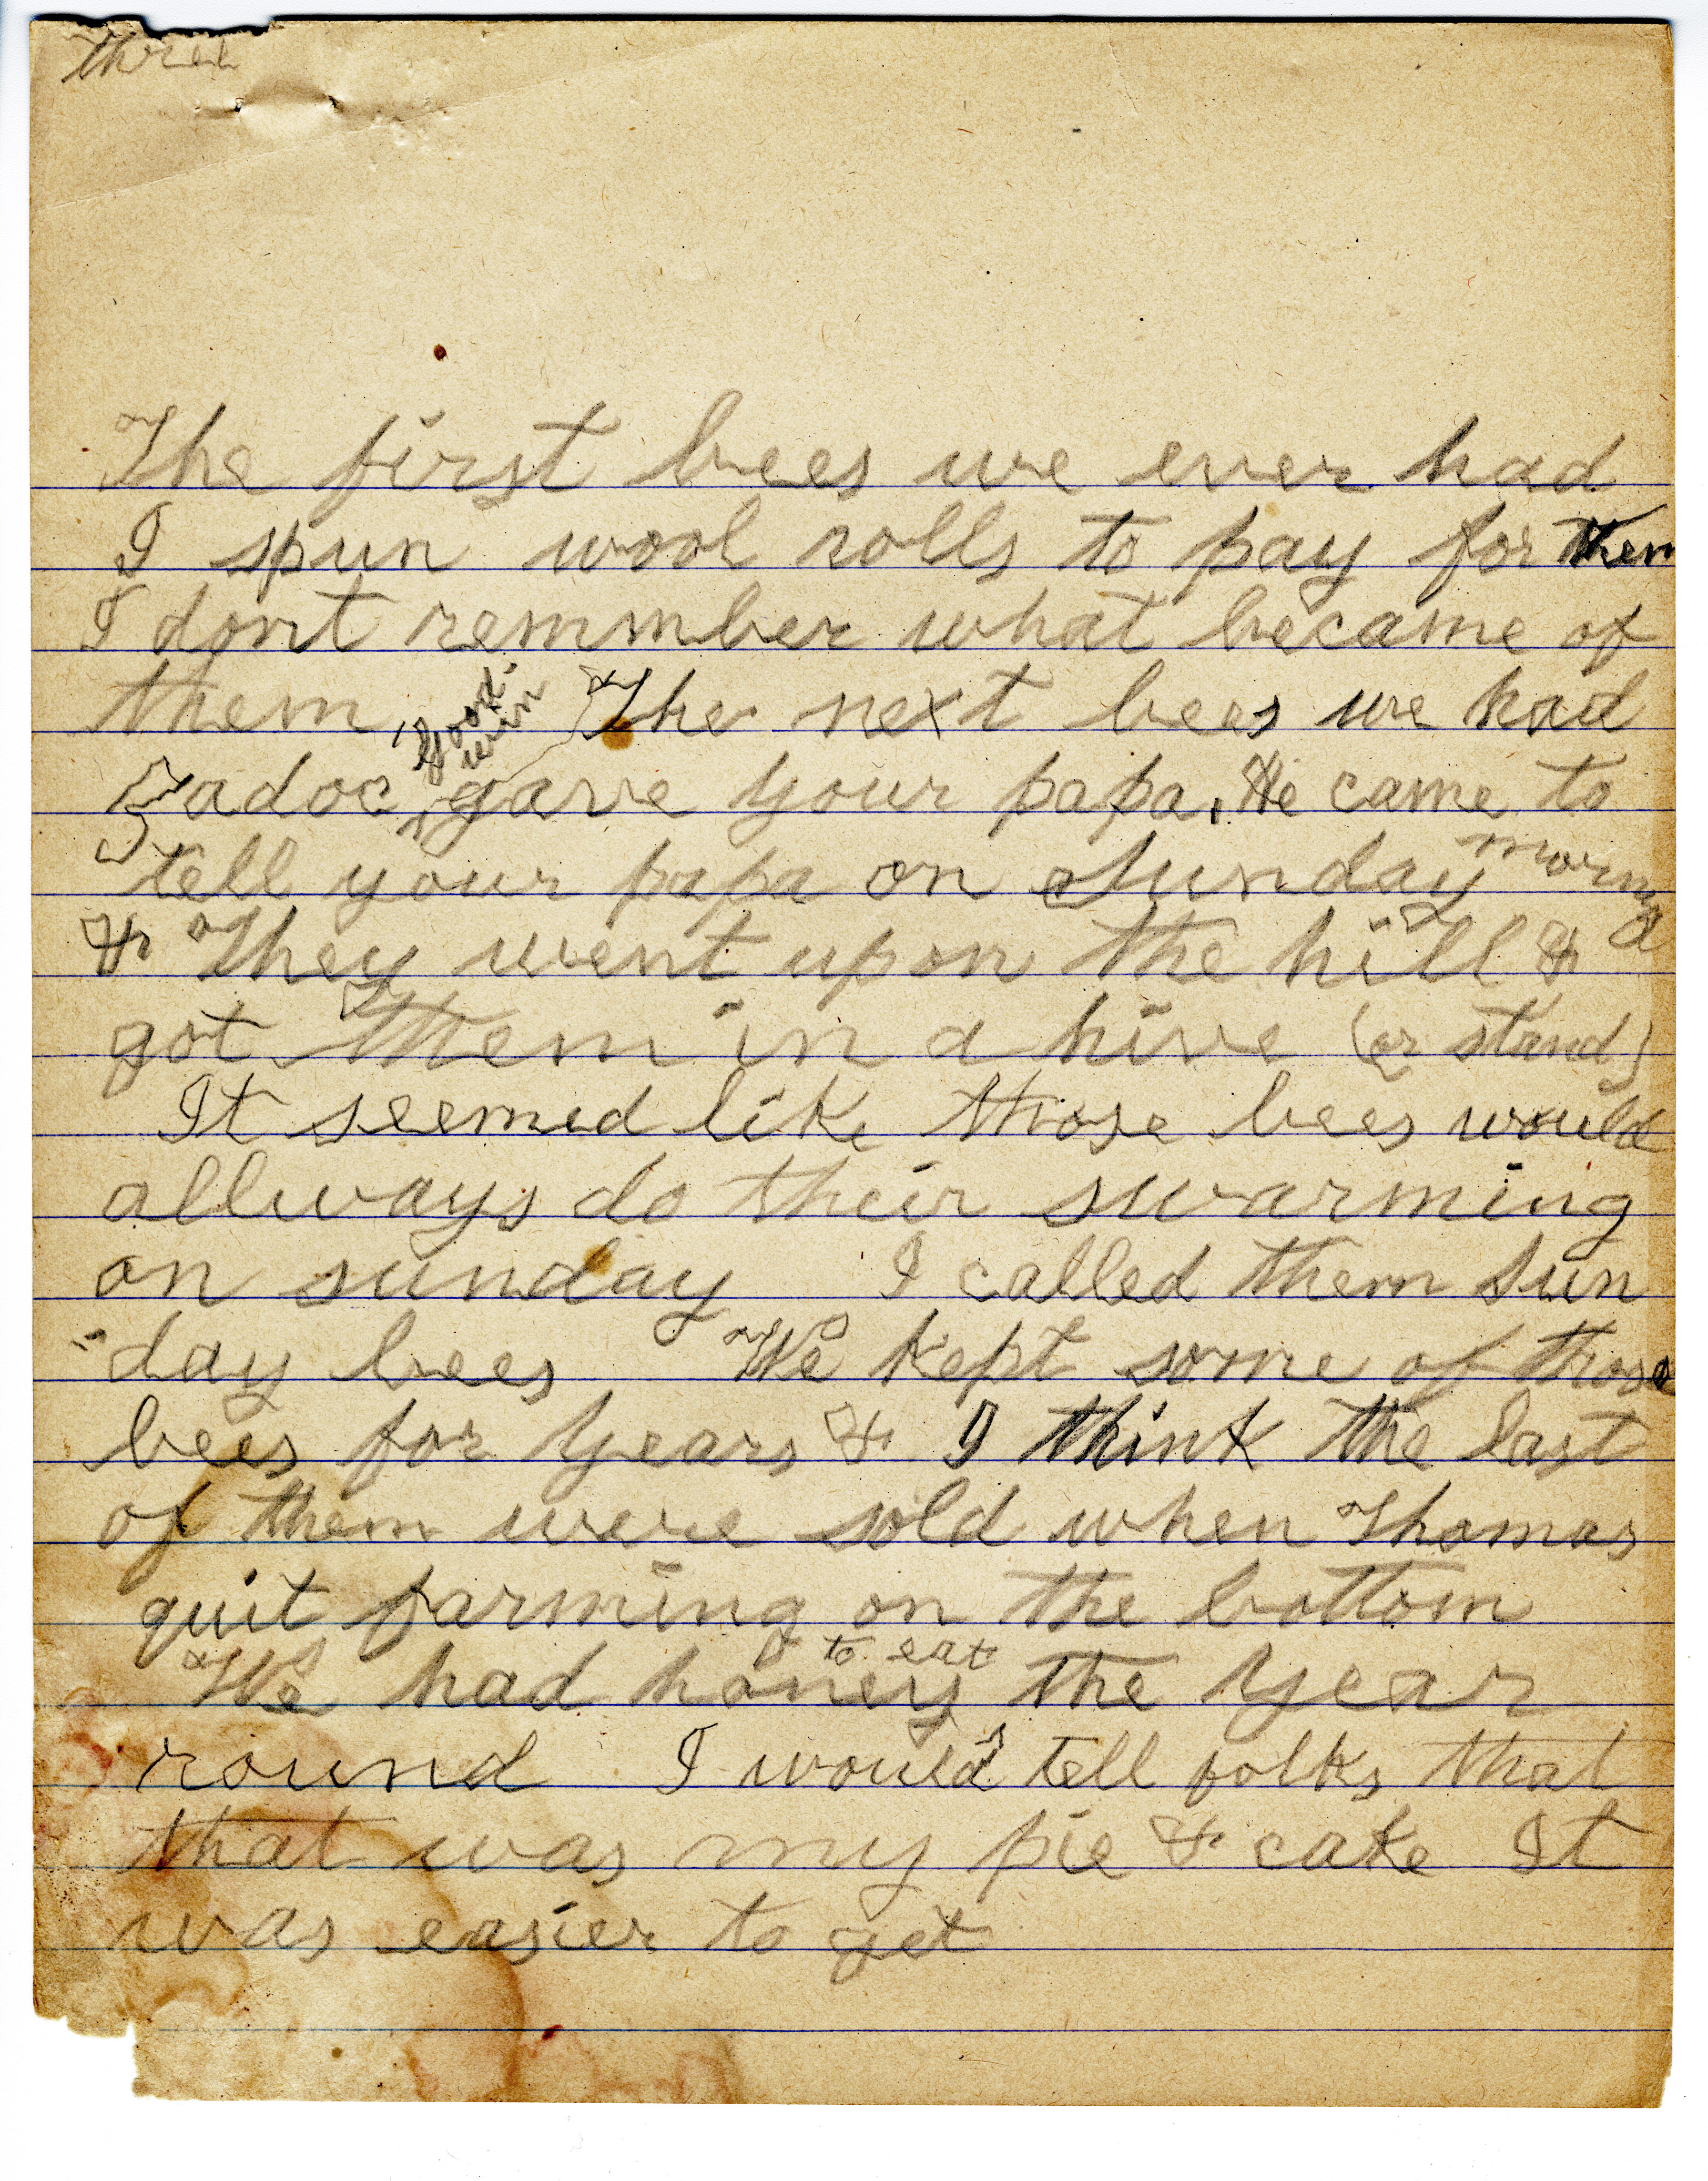 three
The first bees we ever had
I spun wool rolls to pay for them
I dont remmber what became of
them, The next bees we had
Zadoc Good-win gave your papa, He came to
tell your papa on Sunday morning
& They went upon the hill &
got them in a hive (or stand)
It seemed like those bees would
allways do their swarming
on sunday I called them Sun
-day bees We kept some of those
bees for years & I think the last
of them were sold when Thomas
quit farming on the bottom
We had honey to eat the year
round I would tell folks that
that was my pie & cake It
was easier to get